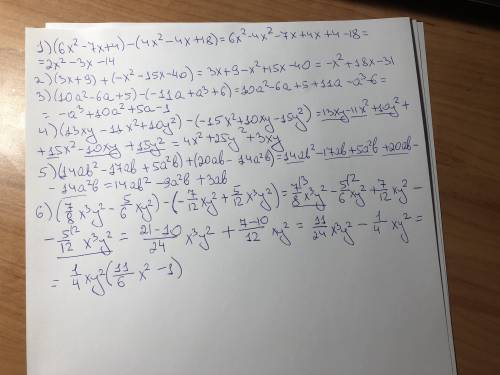 1) (6x² - 7x + 4) - (4x² - 4x + 18) = 6x² - 4x² - 7x + 4x + 4 - 18 =
= 2x² - 3x - 14
2) (3x + 9) + (-x² - 15x - 40) = 3x + 9 - x² + 15x - 40 = -x² + 18x - 31
3) (10a² - 6a + 5) - (-11a + a³ + 6) = 10a² - 6a + 5 + 11a - a³ - 6 =
= -a³ + 10a² + 5a - 1
4) (13xy - 11x² + 10y²) - (-15x² + 10xy - 15y²) = 13xy - 11x² + 10y² +
+ 15x² - 10xy + 15y² = 4x² + 25y² + 3xy
5) (14ab² - 17ab + 5a²b) + (20ab - 14a²b) = 14ab² - 17ab + 5a²b + 20ab -
- 14a²b = 14ab² - 9a²b + 3ab
6) (7/8 x³y² - 5/6 xy²) - (-7/12 xy² + 5/12 x³y²) = 7/8 x³y² - 5/6 xy² + 7/12 xy² -
- 5/12 x³y² = 21-10/24 x³y² + 7-10/12 xy² = 11/24 x³y² - 1/4 xy² =
= 1/4 xy² (11/6 x² - 1)